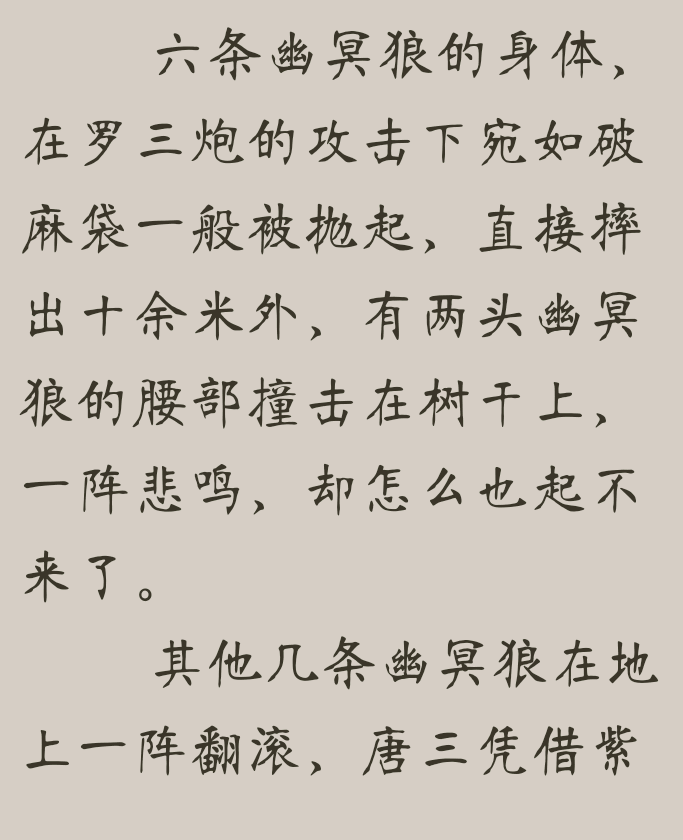 六条幽冥狼的身体、
在罗三炮的攻击下宛如破
麻袋一般被抛起、直接摔
出十余米外、有两头幽冥
狼的腰部撞击在树干上、
一阵悲鸣、却怎么也起不
来了。
其他几条幽冥狼在地
上一阵翻滚、唐三凭借紫